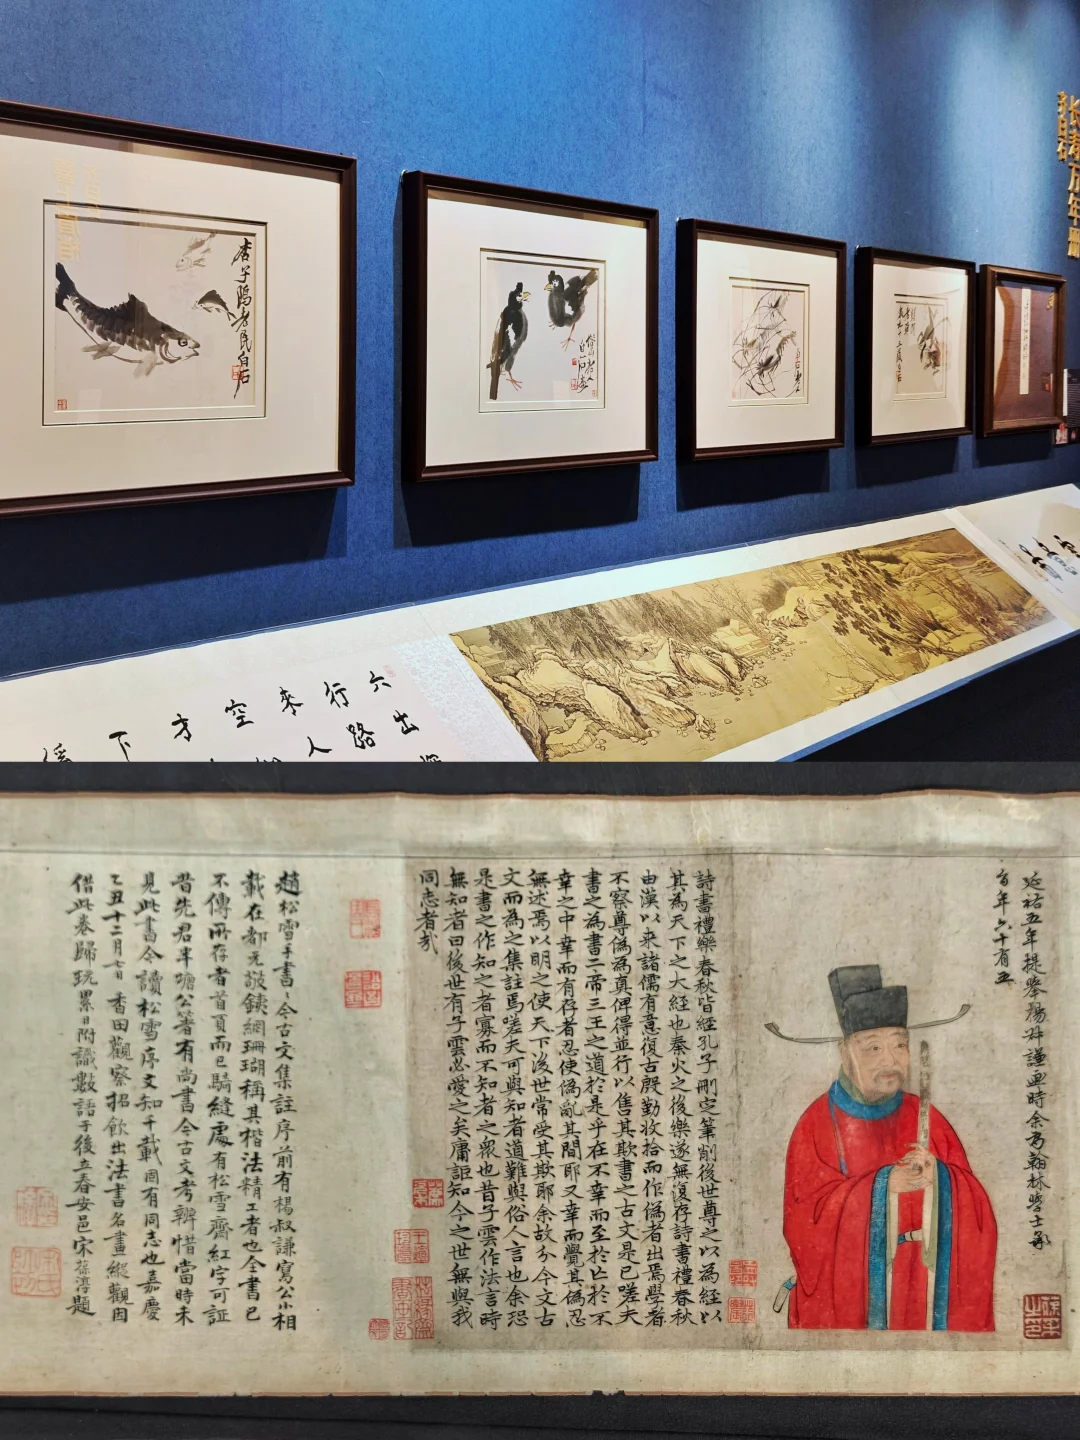 杏子隖老民白石
白石老人
六
出
行
路
來
人
空
才
下
延祐五年提舉楊叔謙画時余為翰林學士承
旨年六十有五
詩書禮樂春秋皆經孔子刪定筆削後世尊之以為經以
其為天下之大經也秦火之後樂遂無復存詩書禮春秋
由漢以來諸儒有意復古殷勤收拾而作偽者出焉學者
不察尊偽為真俾得並行以售其欺書之古文是已嗟夫
書之為書二帝三王之道於是乎在不幸而至於亡於不
幸之中幸而有存者忍使偽亂其間耶又幸而覺其偽忍
無述焉以明之使天下後世常受其欺耶余故分今文古
文而為之集註焉嗟夫可與知者道難與俗人言也余恐
是書之作知之者寡而不知者之衆也昔子雲作法言時
無知者曰後世有子雲必愛之矣庸詎知今之世無與我
同志者哉
趙松雪手書今古文集註序前有楊叔謙寫公小相
載在都元敬鐵網珊瑚稱其楷法精工者也全書已
不傳所存者首頁而已騎縫處有松雪齋紅字可証
昔先君半塘公著有尚書今古文考辨惜當時未
見此書今讀松雪序文知千載固有同志也嘉慶
乙丑十二月七日香田觀察招飲出法書名畫縱觀因
借此卷歸玩累日附識數語于後立春安邑宋葆淳題